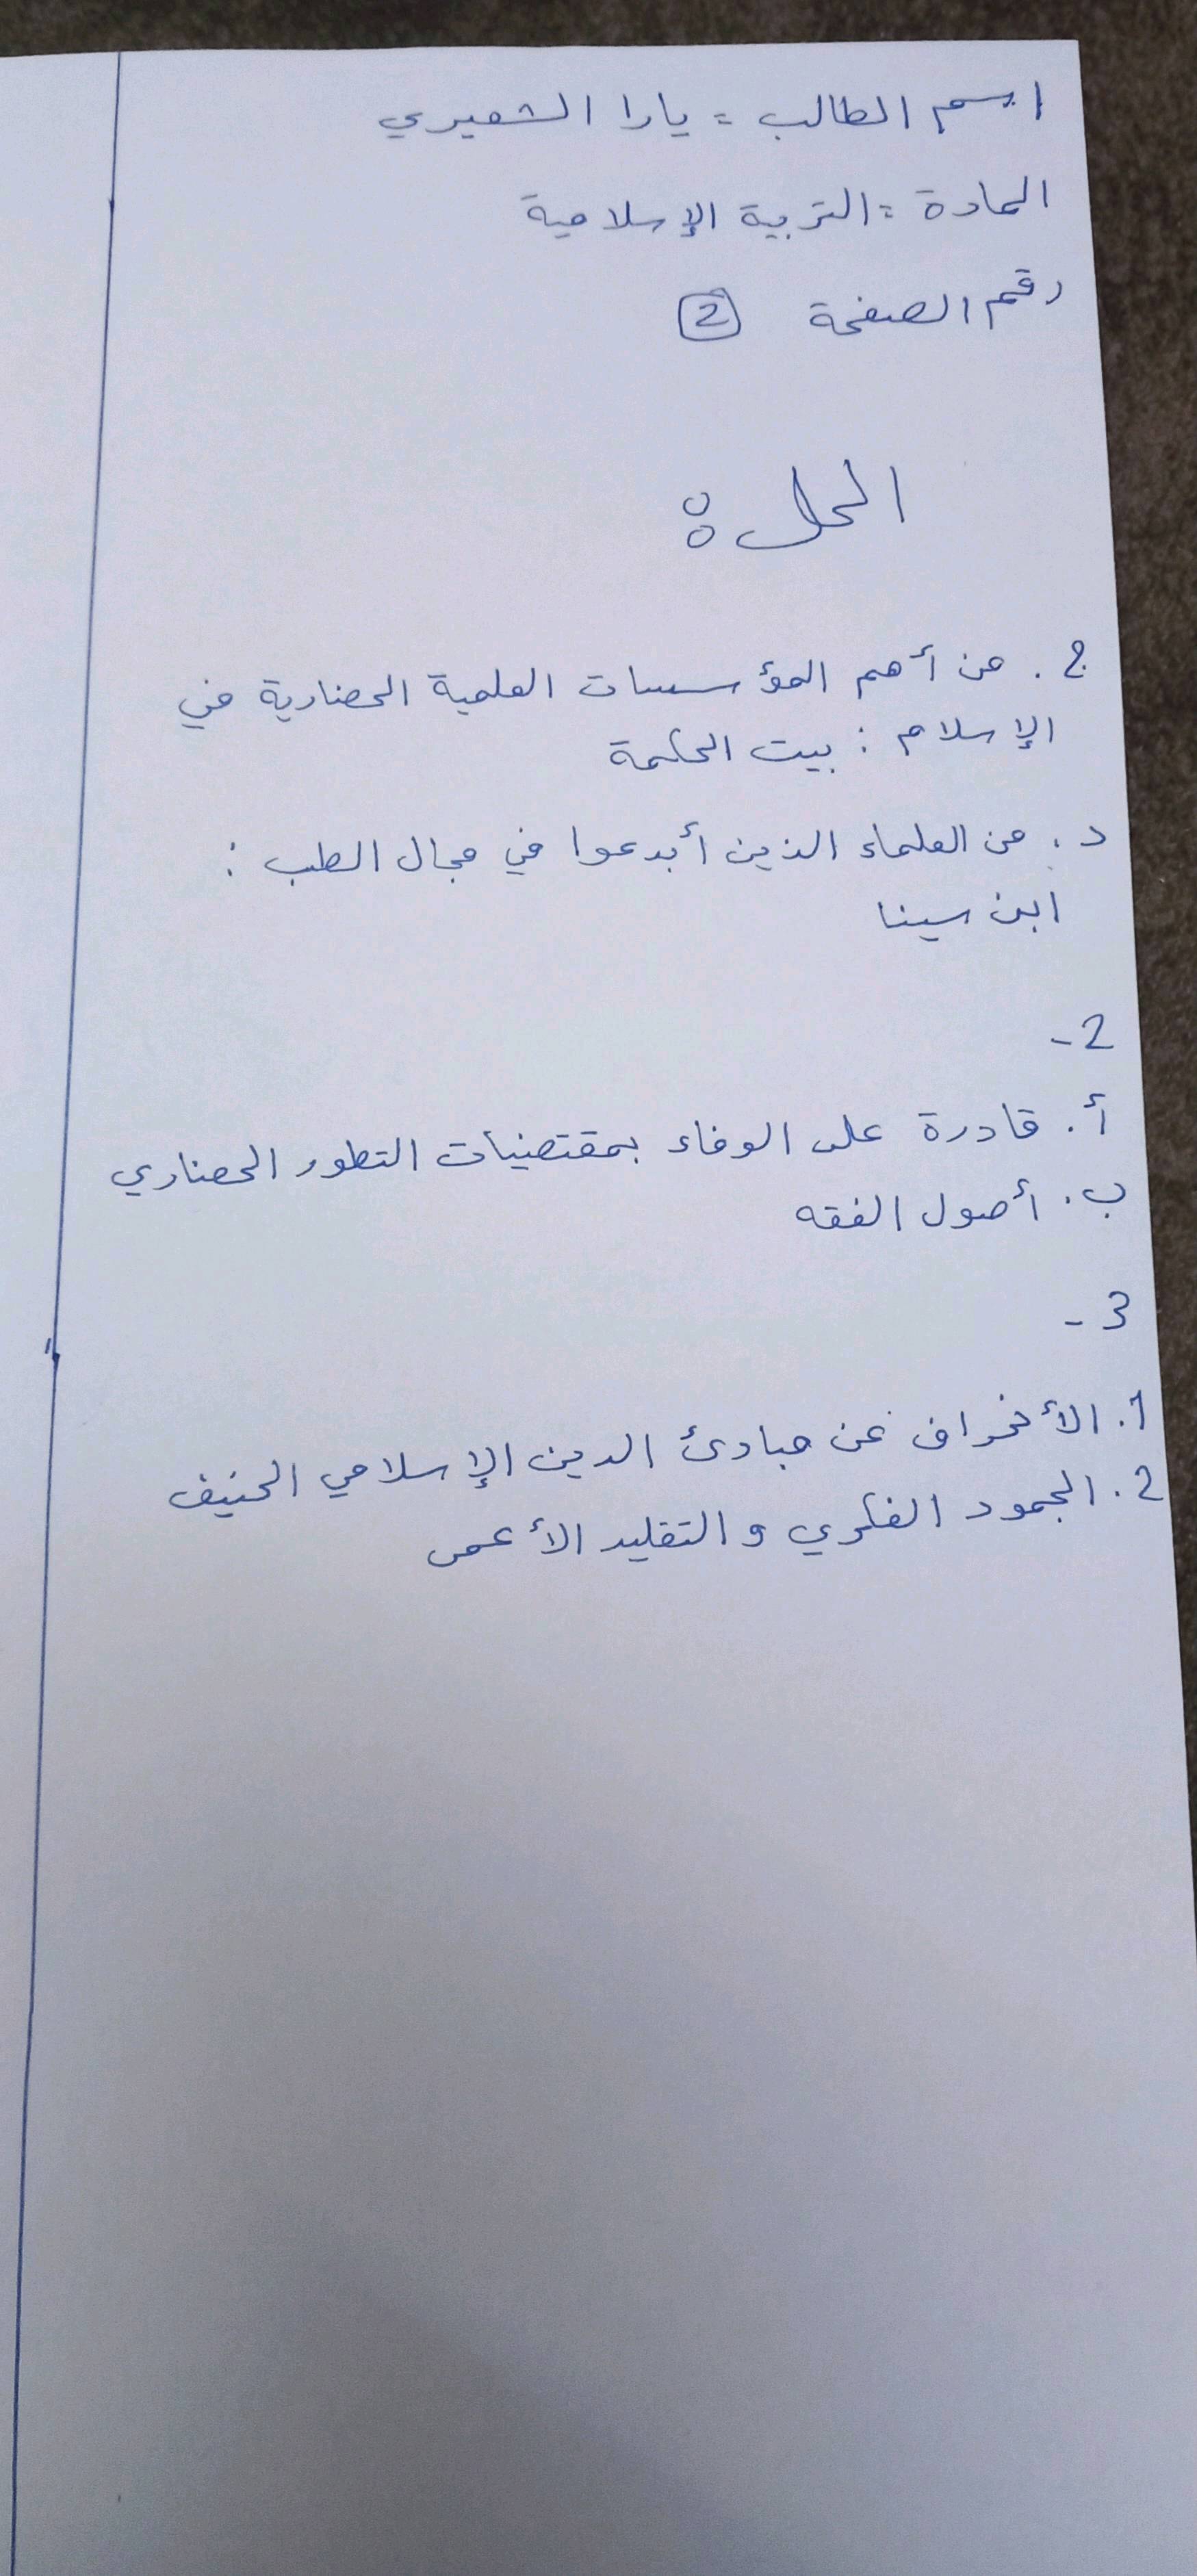 اسم الطالب = يارا الشعيري
المادة = التربية الإسلامية
رقم الصفحة 2
الحل :
ج . من أهم المؤسسات العلمية الحضارية في
الإسلام : بيت الحكمة
د . من العلماء الذين أبدعوا في مجال الطب :
ابن سينا
2 -
أ . قادرة على الوفاء بمقتضيات التطور الحضاري
ب . أصول الفقه
3 -
1 . الأنحراف عن مبادئ الدين الإسلامي الحنيف
2 . الجمود الفكري و التقليد الأعمى